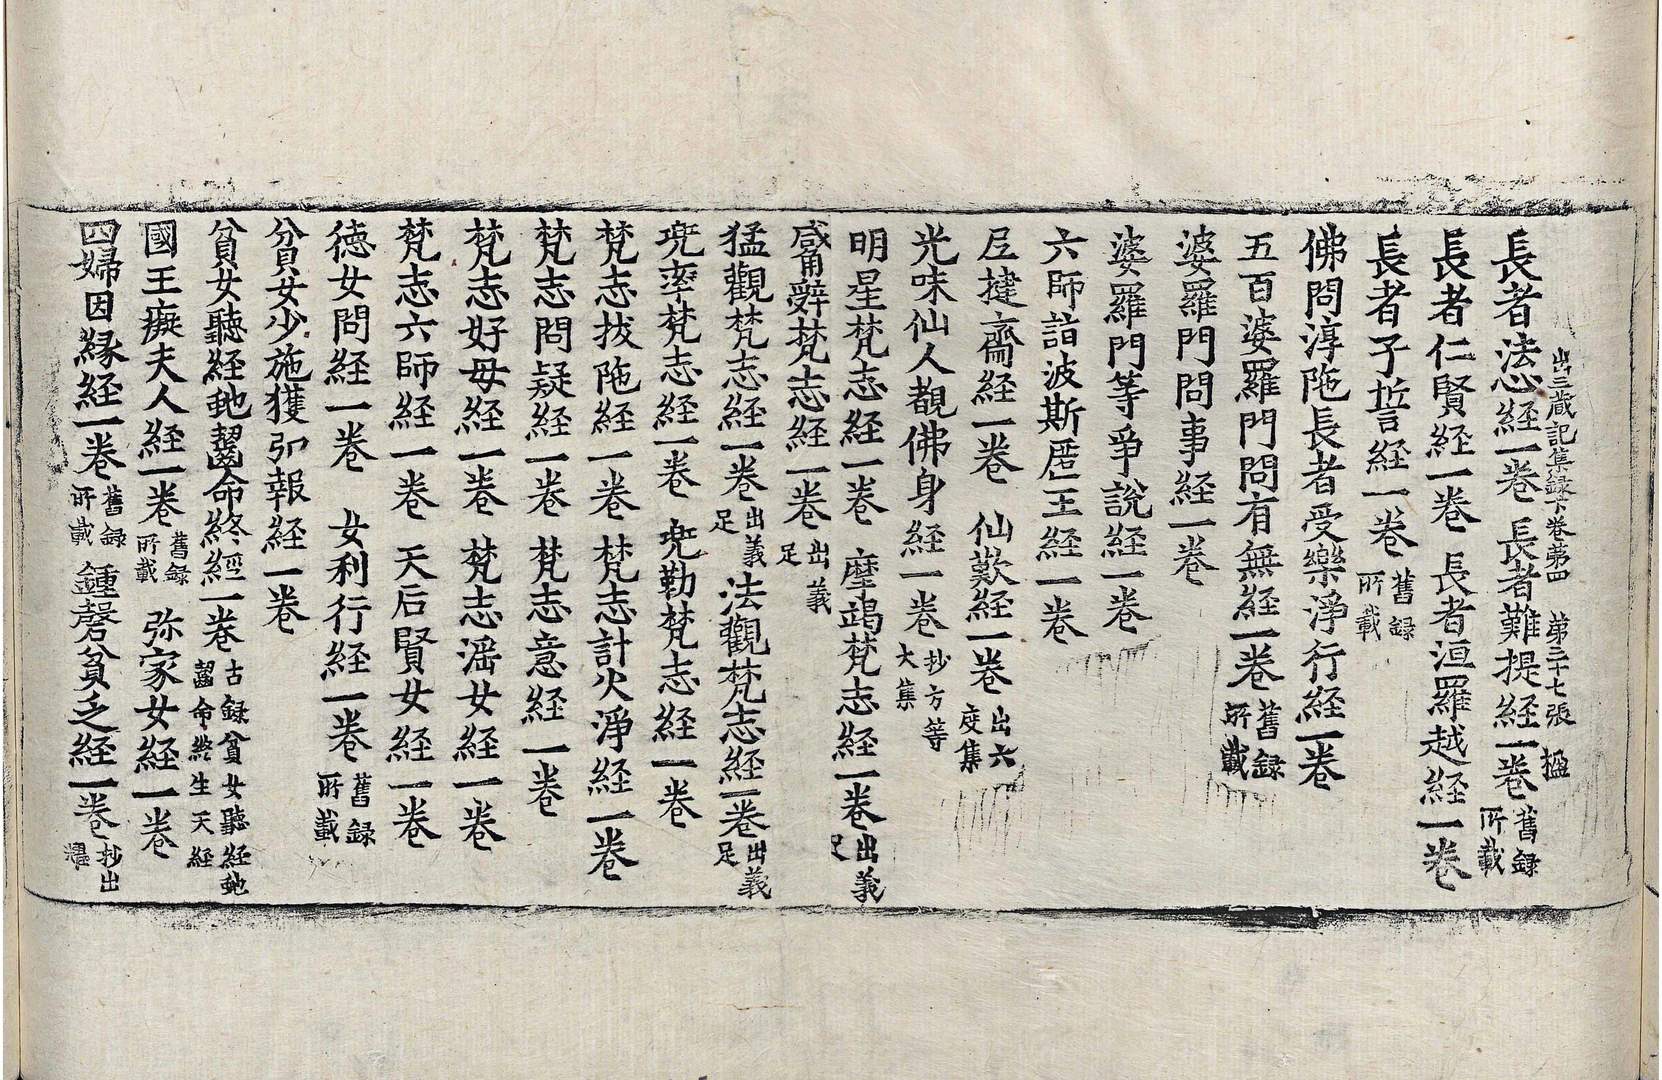 出三蔵記集録下巻第四　第三十七張　楹
長者法志経一巻　長者難提経一巻舊録所載
長者仁賢経一巻　長者洹羅越経一巻
長者子誓経一巻舊録所載
佛問淳陁長者受樂淨行経一巻
五百婆羅門問有無経一巻舊録所載
婆羅門問事経一巻
婆羅門等爭說経一巻
六師詣波斯匿王経一巻
尼揵齋経一巻　仙歎経一巻出六度集
光味仙人覩佛身経一巻抄方等大集
明星梵志経一巻　摩竭梵志経一巻出義足
咸角辭梵志経一巻出義足
猛觀梵志経一巻出義足　法觀梵志経一巻出義足
兜率梵志経一巻　兜勒梵志経一巻
梵志拔陁経一巻　梵志計火淨経一巻
梵志問疑経一巻　梵志意経一巻
梵志好母経一巻　梵志滛女経一巻
梵志六師経一巻　天后賢女経一巻
德女問経一巻　女利行経一巻舊録所載
貧女少施獲弘報経一巻
貧女聽経虵齧命終經一巻古録貧女聽経虵齧命終生天経
國王癡夫人経一巻舊録所載　弥家女経一巻
四婦因緣経一巻舊録所載　鍾磬貧乏経一巻抄出